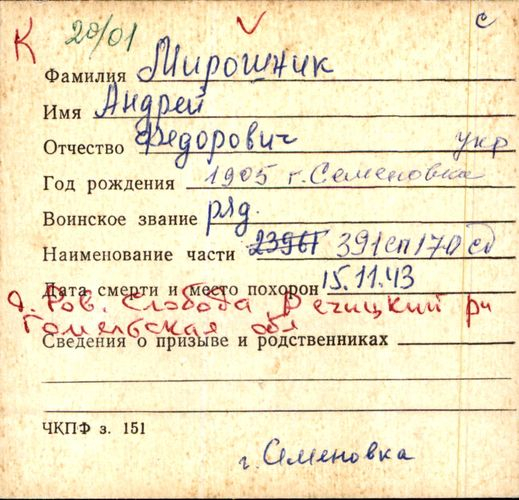 К 20/01 с
Фамилия Мирошник
Имя Андрей
Отчество Федорович укр
Год рождения 1905 г. Семеновка
Воинское звание ряд.
Наименование части 391сп170 сд
Дата смерти и место похорон 15.11.43
д. Ров. Слобода Речицкий рн
Гомельская обл
Сведения о призыве и родственниках
ЧКПФ з. 151
г. Семеновка